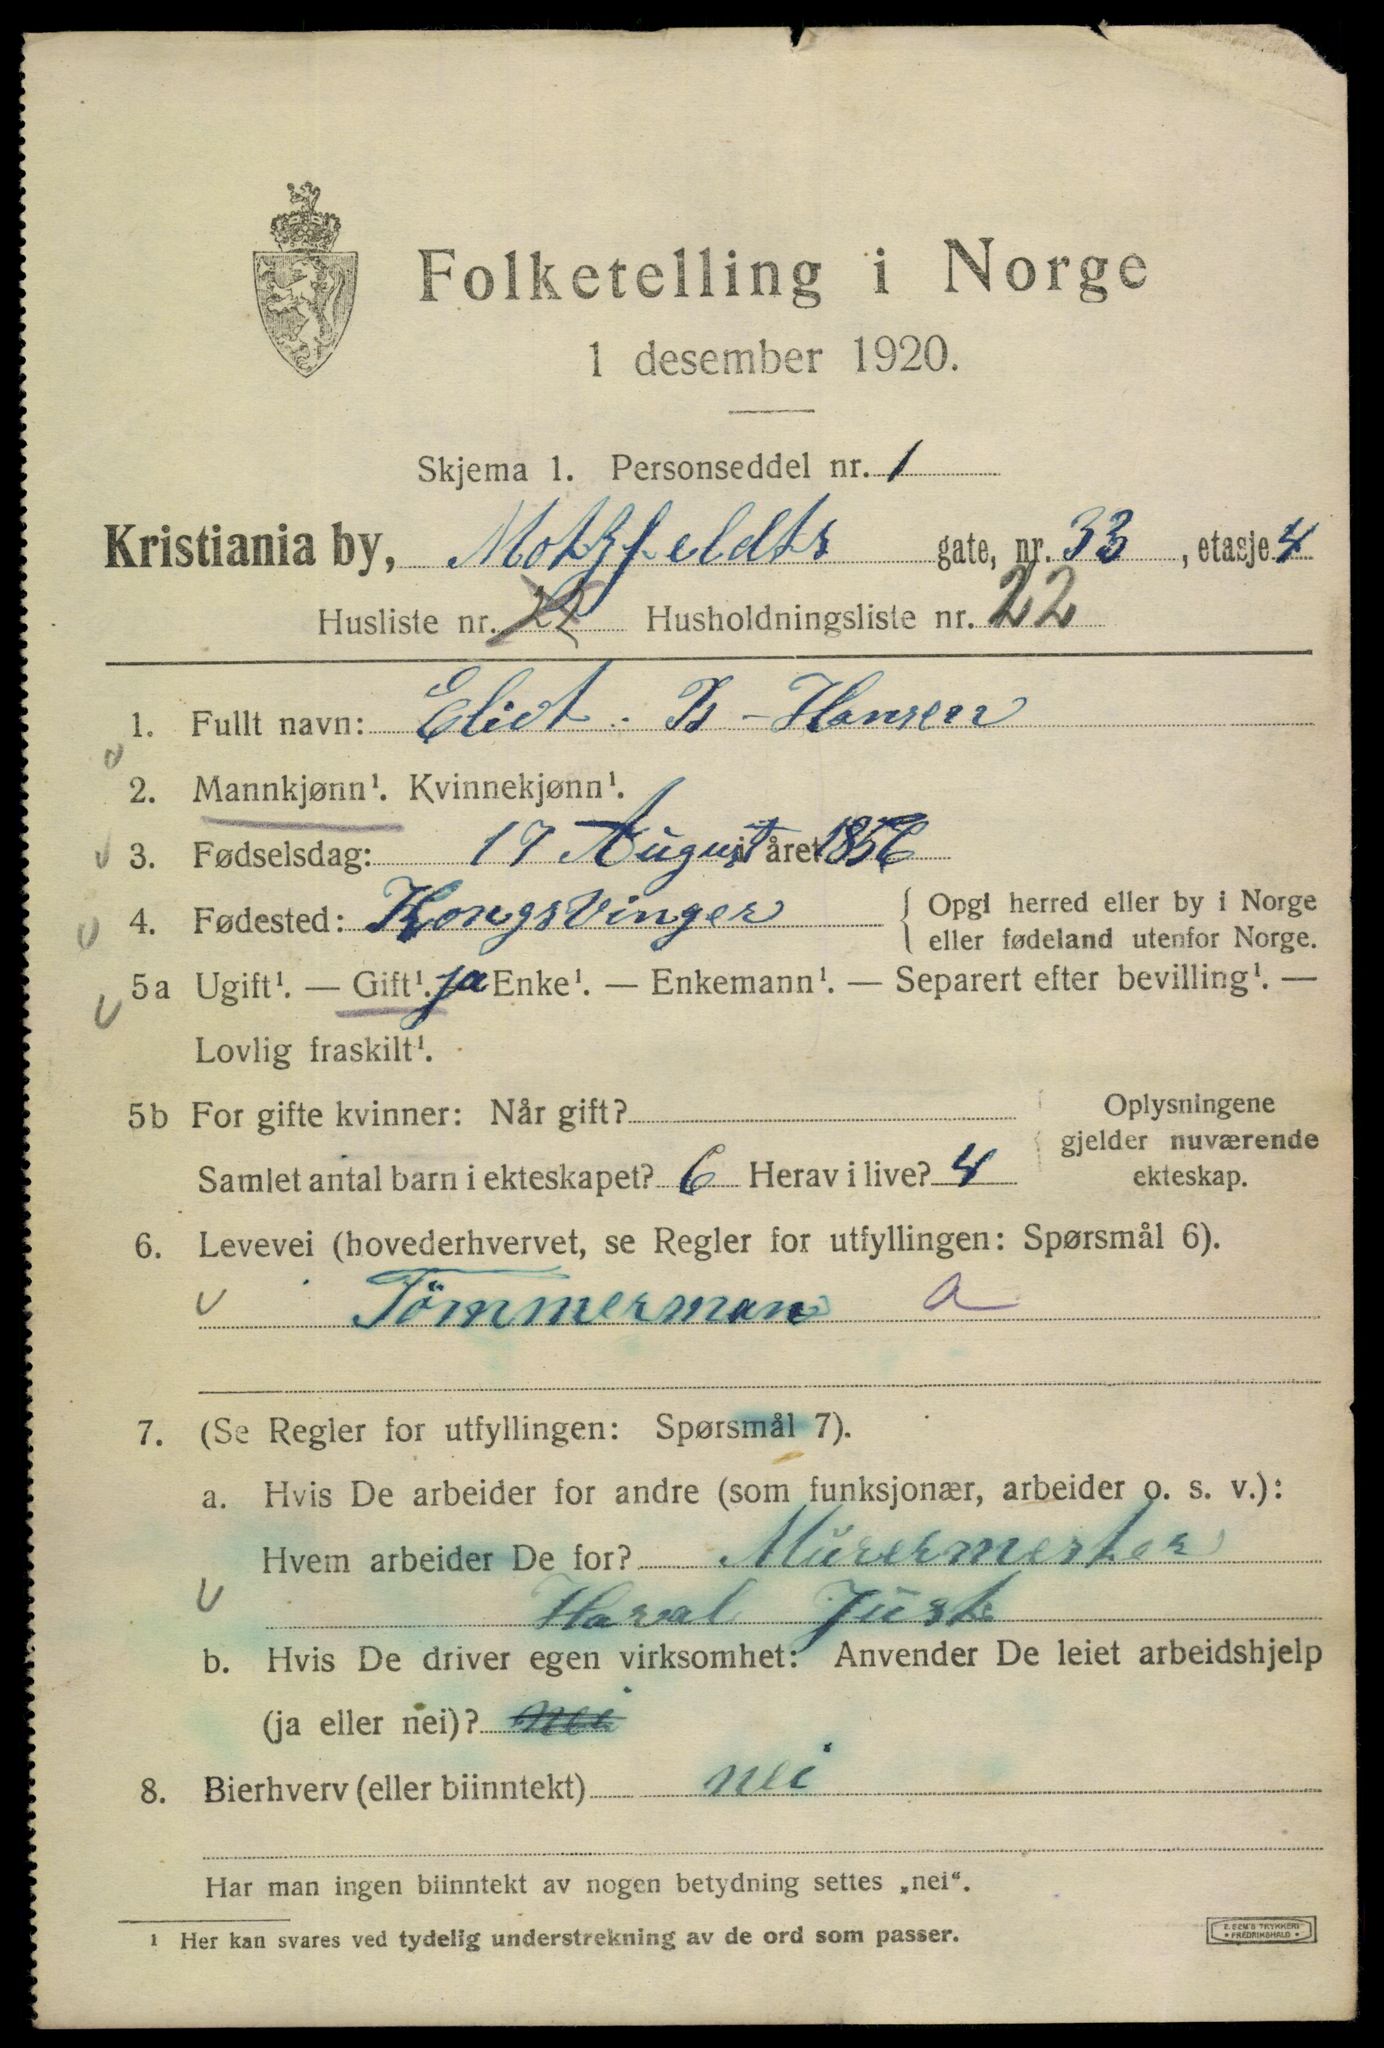 Folketelling i Norge
1 desember 1920.
Skjema 1. Personseddel nr. 1
Kristiania by, Motzfeldts gate, nr. 33, etasje 4
Husliste nr. 22 Husholdningsliste nr. 22
1. Fullt navn: Eliot. B - Hansen
2. Mannkjønn¹. Kvinnekjønn¹.
3. Fødselsdag: 17 August i året 1856
4. Fødested: Kongsvinger { Opgi herred eller by i Norge
eller fødeland utenfor Norge.
5a Ugift¹. — Gift¹. ja Enke¹. — Enkemann¹. — Separert efter bevilling¹. —
Lovlig fraskilt¹.
5b For gifte kvinner: Når gift? Oplysningene
gjelder nuværende
Samlet antal barn i ekteskapet? 6 Herav i live? 4 ekteskap.
6. Levevei (hovederhvervet, se Regler for utfyllingen: Spørsmål 6).
Tömmerman a
7. (Se Regler for utfyllingen: Spørsmål 7).
a. Hvis De arbeider for andre (som funksjonær, arbeider o. s. v.):
Hvem arbeider De for? Murermester
Harval Just
b. Hvis De driver egen virksomhet: Anvender De leiet arbeidshjelp
(ja eller nei)? nei
8. Bierhverv (eller biinntekt) nei
Har man ingen biinntekt av nogen betydning settes „nei“.
¹ Her kan svares ved tydelig understrekning av de ord som passer.
E. SEM'S TRYKKERI
FREDRIKSHALD